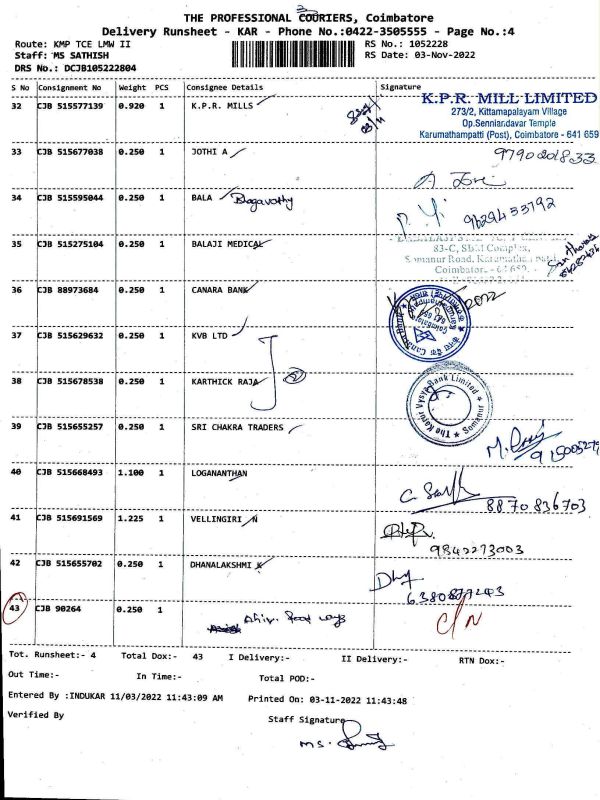 THE PROFESSIONAL COURIERS, Coimbatore
Delivery Runsheet - KAR - Phone No.:0422-3505555 - Page No.:4
Route: KMP TCE LMW II
RS No.: 1052228
Staff: MS SATHISH
RS Date: 03-Nov-2022
DRS No.: DCJB105222804
S No Consignment No Weight PCS Consignee Details Signature
32 CJB 515577139 0.920 1 K.P.R. MILLS
K.P.R. MILL LIMITED
273/2, Kittamapalayam Village
Op.Senniandavar Temple
Karumathampatti (Post), Coimbatore - 641 659
33 CJB 515677038 0.250 1 JOTHI A
9790201833
34 CJB 515595044 0.250 1 BALA Bagavathy
9629433792
35 CJB 515275104 0.250 1 BALAJI MEDICAL
83-C, Complex,
Somanur Road,
Coimbatore - 641 659.
36 CJB 88973684 0.250 1 CANARA BANK
2022
37 CJB 515629632 0.250 1 KVB LTD
38 CJB 515678538 0.250 1 KARTHICK RAJA
The Karur Vysya Bank Limited
Somanur
39 CJB 515655257 0.250 1 SRI CHAKRA TRADERS
40 CJB 515668493 1.100 1 LOGANANTHAN
8870836703
41 CJB 515691569 1.225 1 VELLINGIRI N
9842273003
42 CJB 515655702 0.250 1 DHANALAKSHMI K
43 CJB 90264 0.250 1
C/N
Tot. Runsheet:- 4 Total Dox:- 43 I Delivery:- II Delivery:- RTN Dox:-
Out Time:- In Time:- Total POD:-
Entered By :INDUKAR 11/03/2022 11:43:09 AM Printed On: 03-11-2022 11:43:48
Verified By
Staff Signature